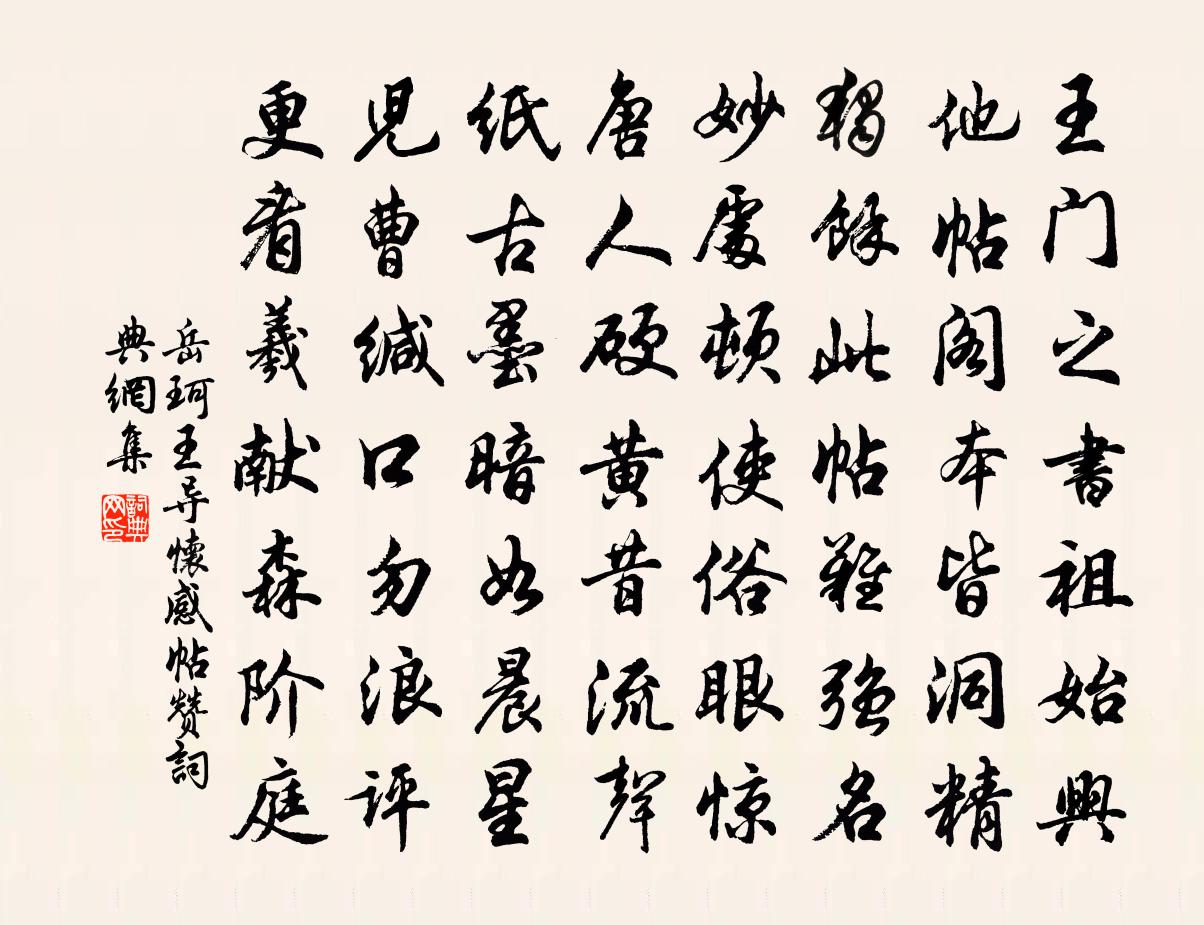 王门之書祖始興
他帖阁本皆洞精
獨餘此帖難强名
妙處頓使俗眼惊
唐人硬黄昔流聲
紙古墨暗如晨星
児曹缄口勿浪评
更看羲献森阶庭
岳珂王导懷感帖赞詞
典網集
詞典网印